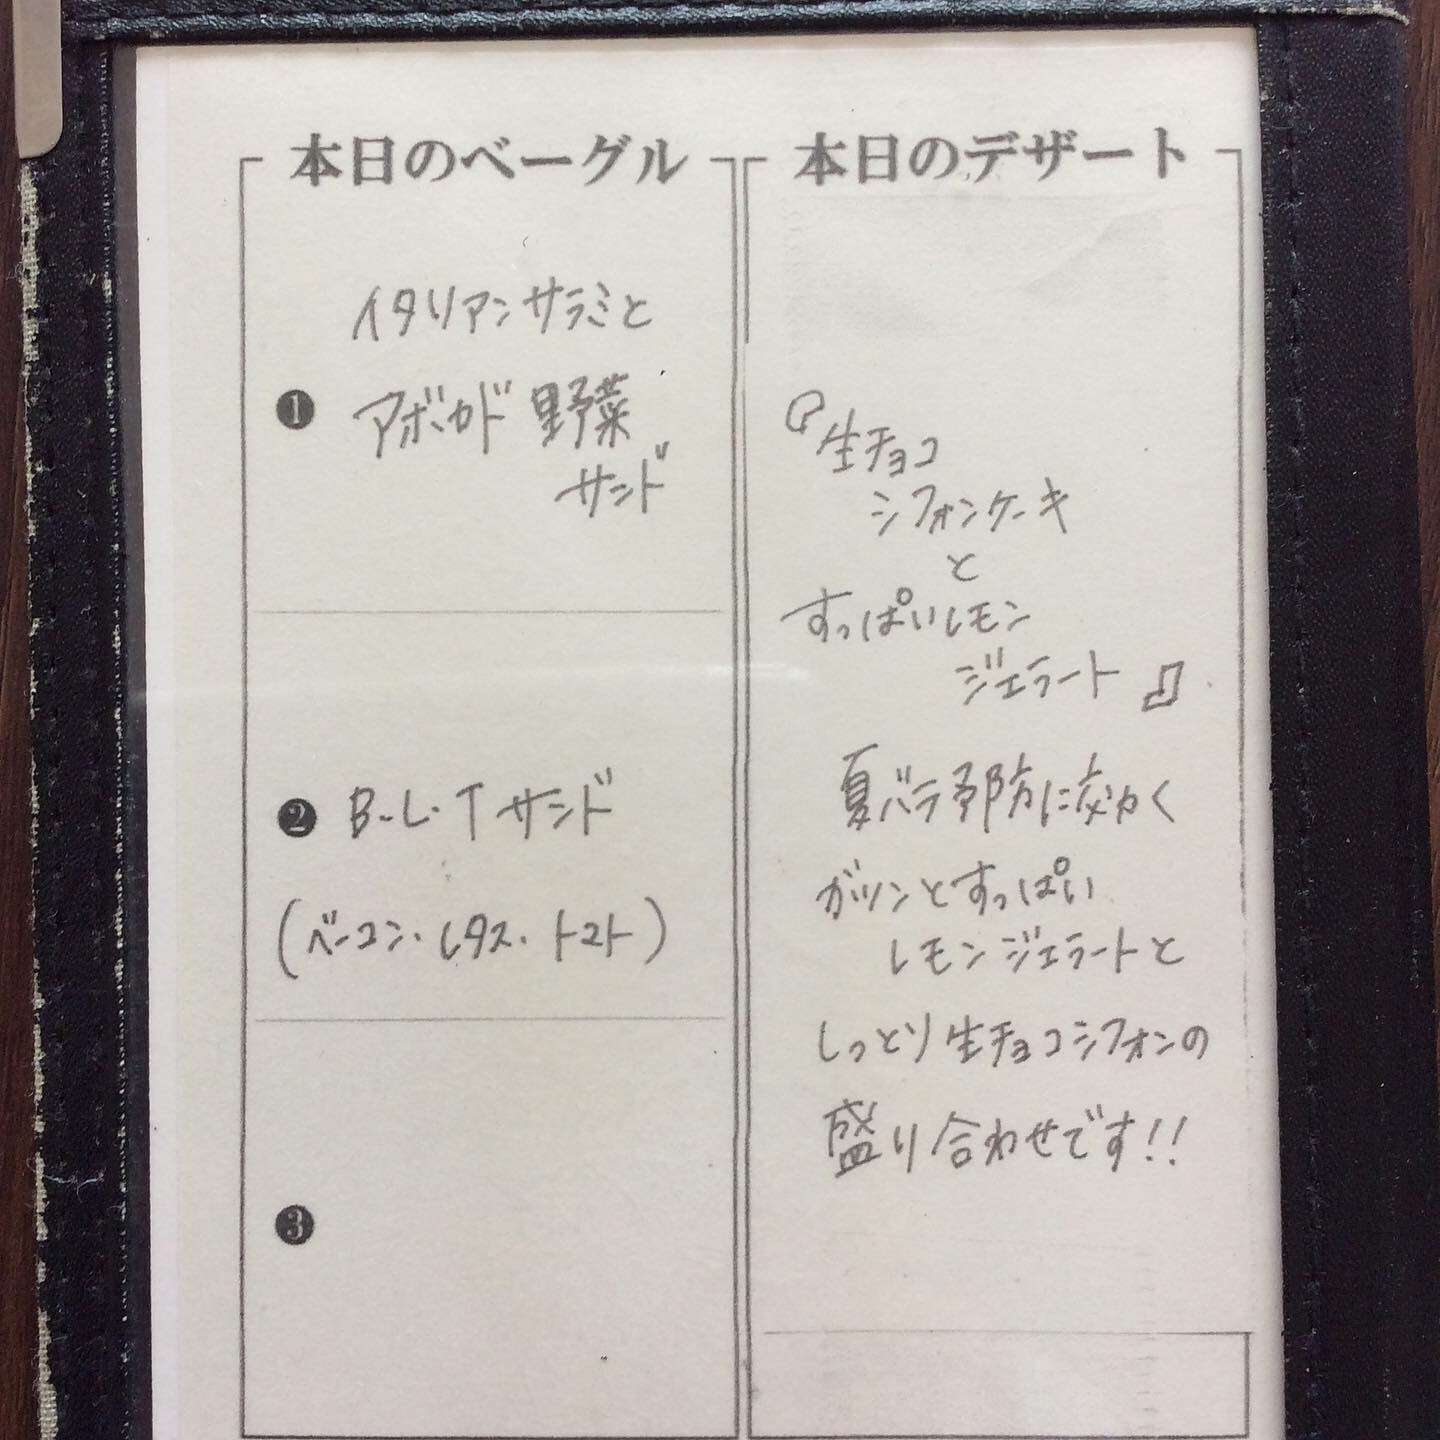 本日のベーグル
イタリアンサラミと
❶ アボカド 野菜
サンド
❷ B.L.Tサンド
(ベーコン・レタス・トマト)
❸
本日のデザート
『生チョコ
シフォンケーキ
と
すっぱいレモン
ジェラート』
夏バテ予防に効く
ガツンとすっぱい
レモンジェラートと
しっとり生チョコシフォンの
盛り合わせです!!